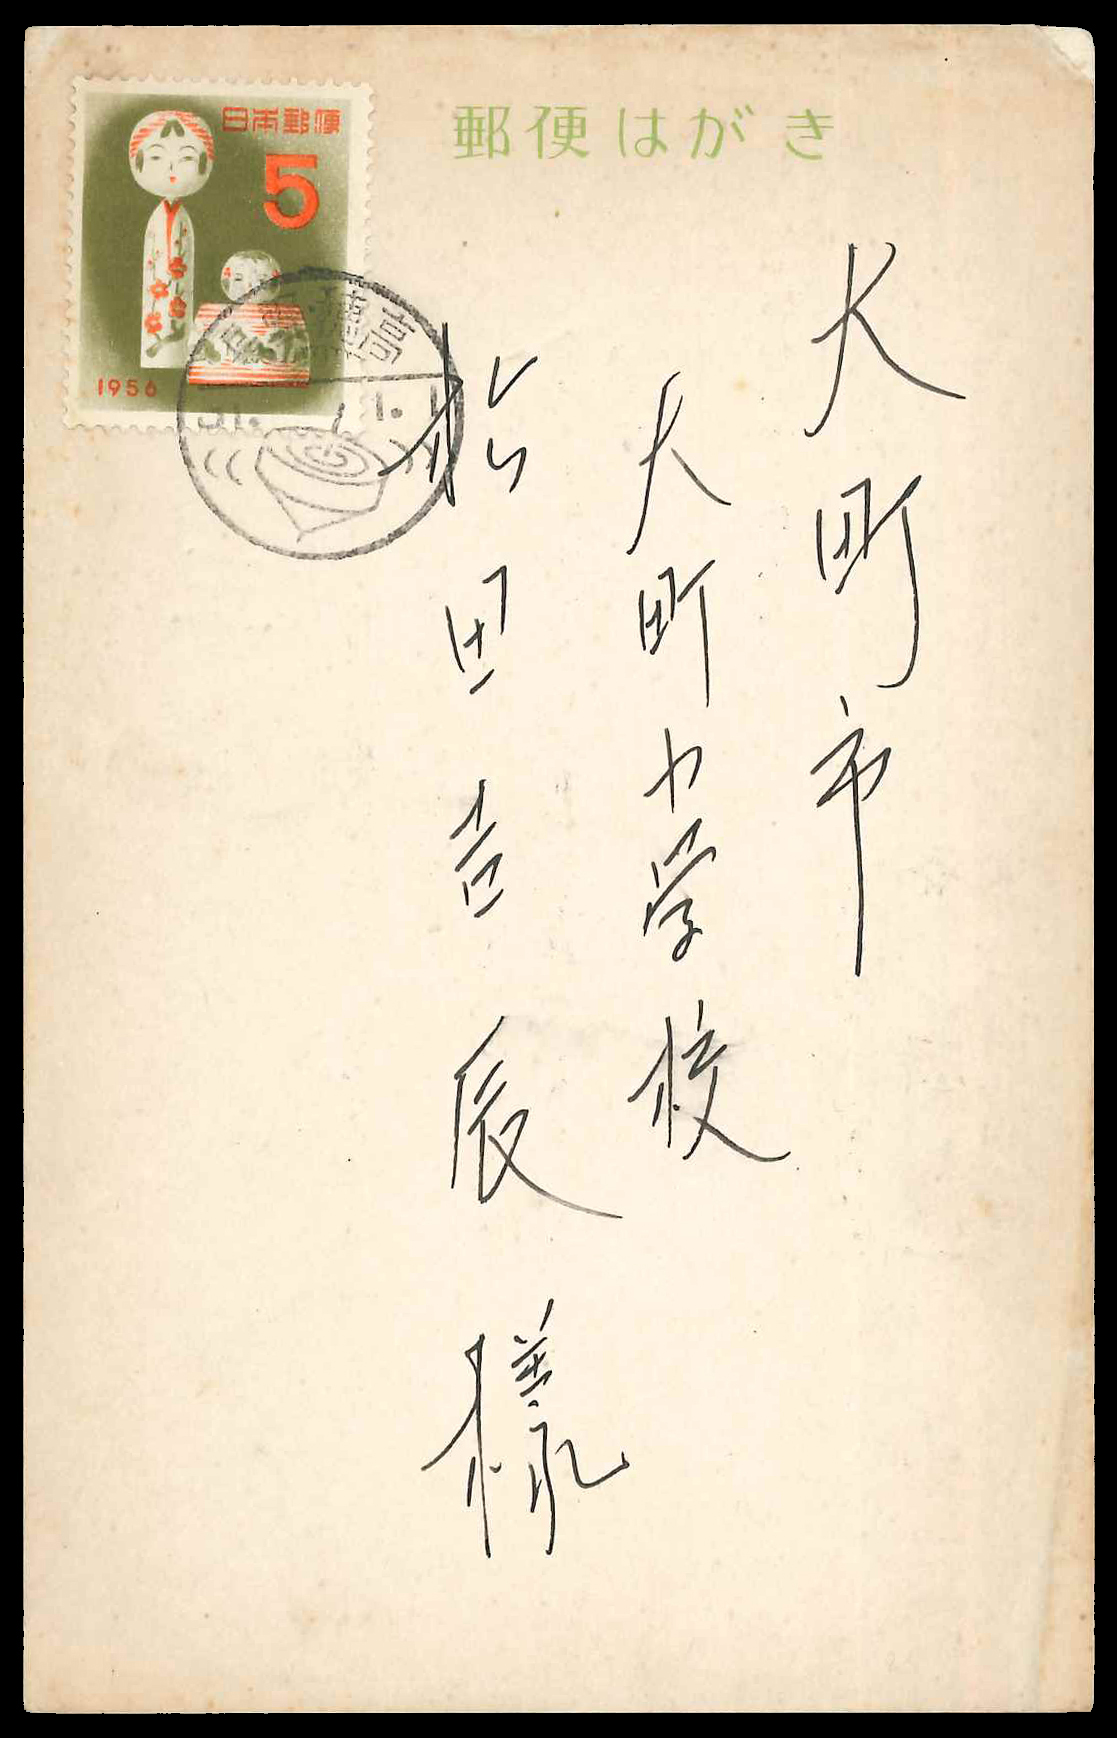 郵便はがき
日本郵便
5
1956
大町市
大町中学校
松田吉辰様